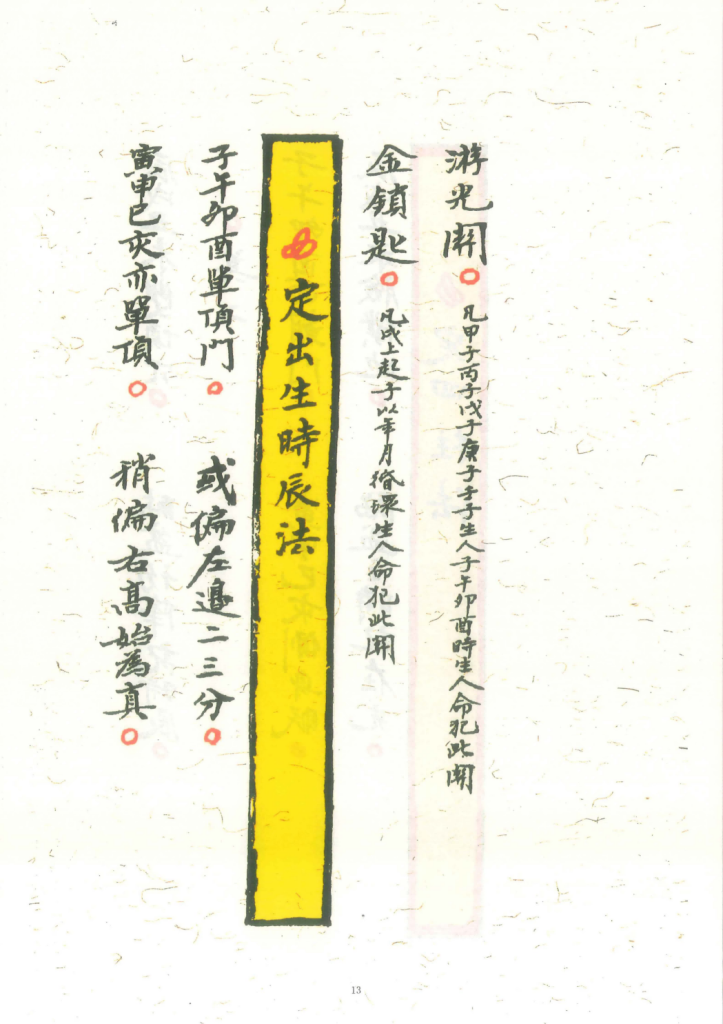 游光関 凡甲子丙子戊子庚子壬子生人子午卯酉時生人命犯此関
金鎖匙 凡戌上起子以年月俻環生人命犯此関
定出生時辰法
子午卯酉單頂門 或偏左邊二三分
寅申巳亥亦單頂 稍偏右高始為真
13